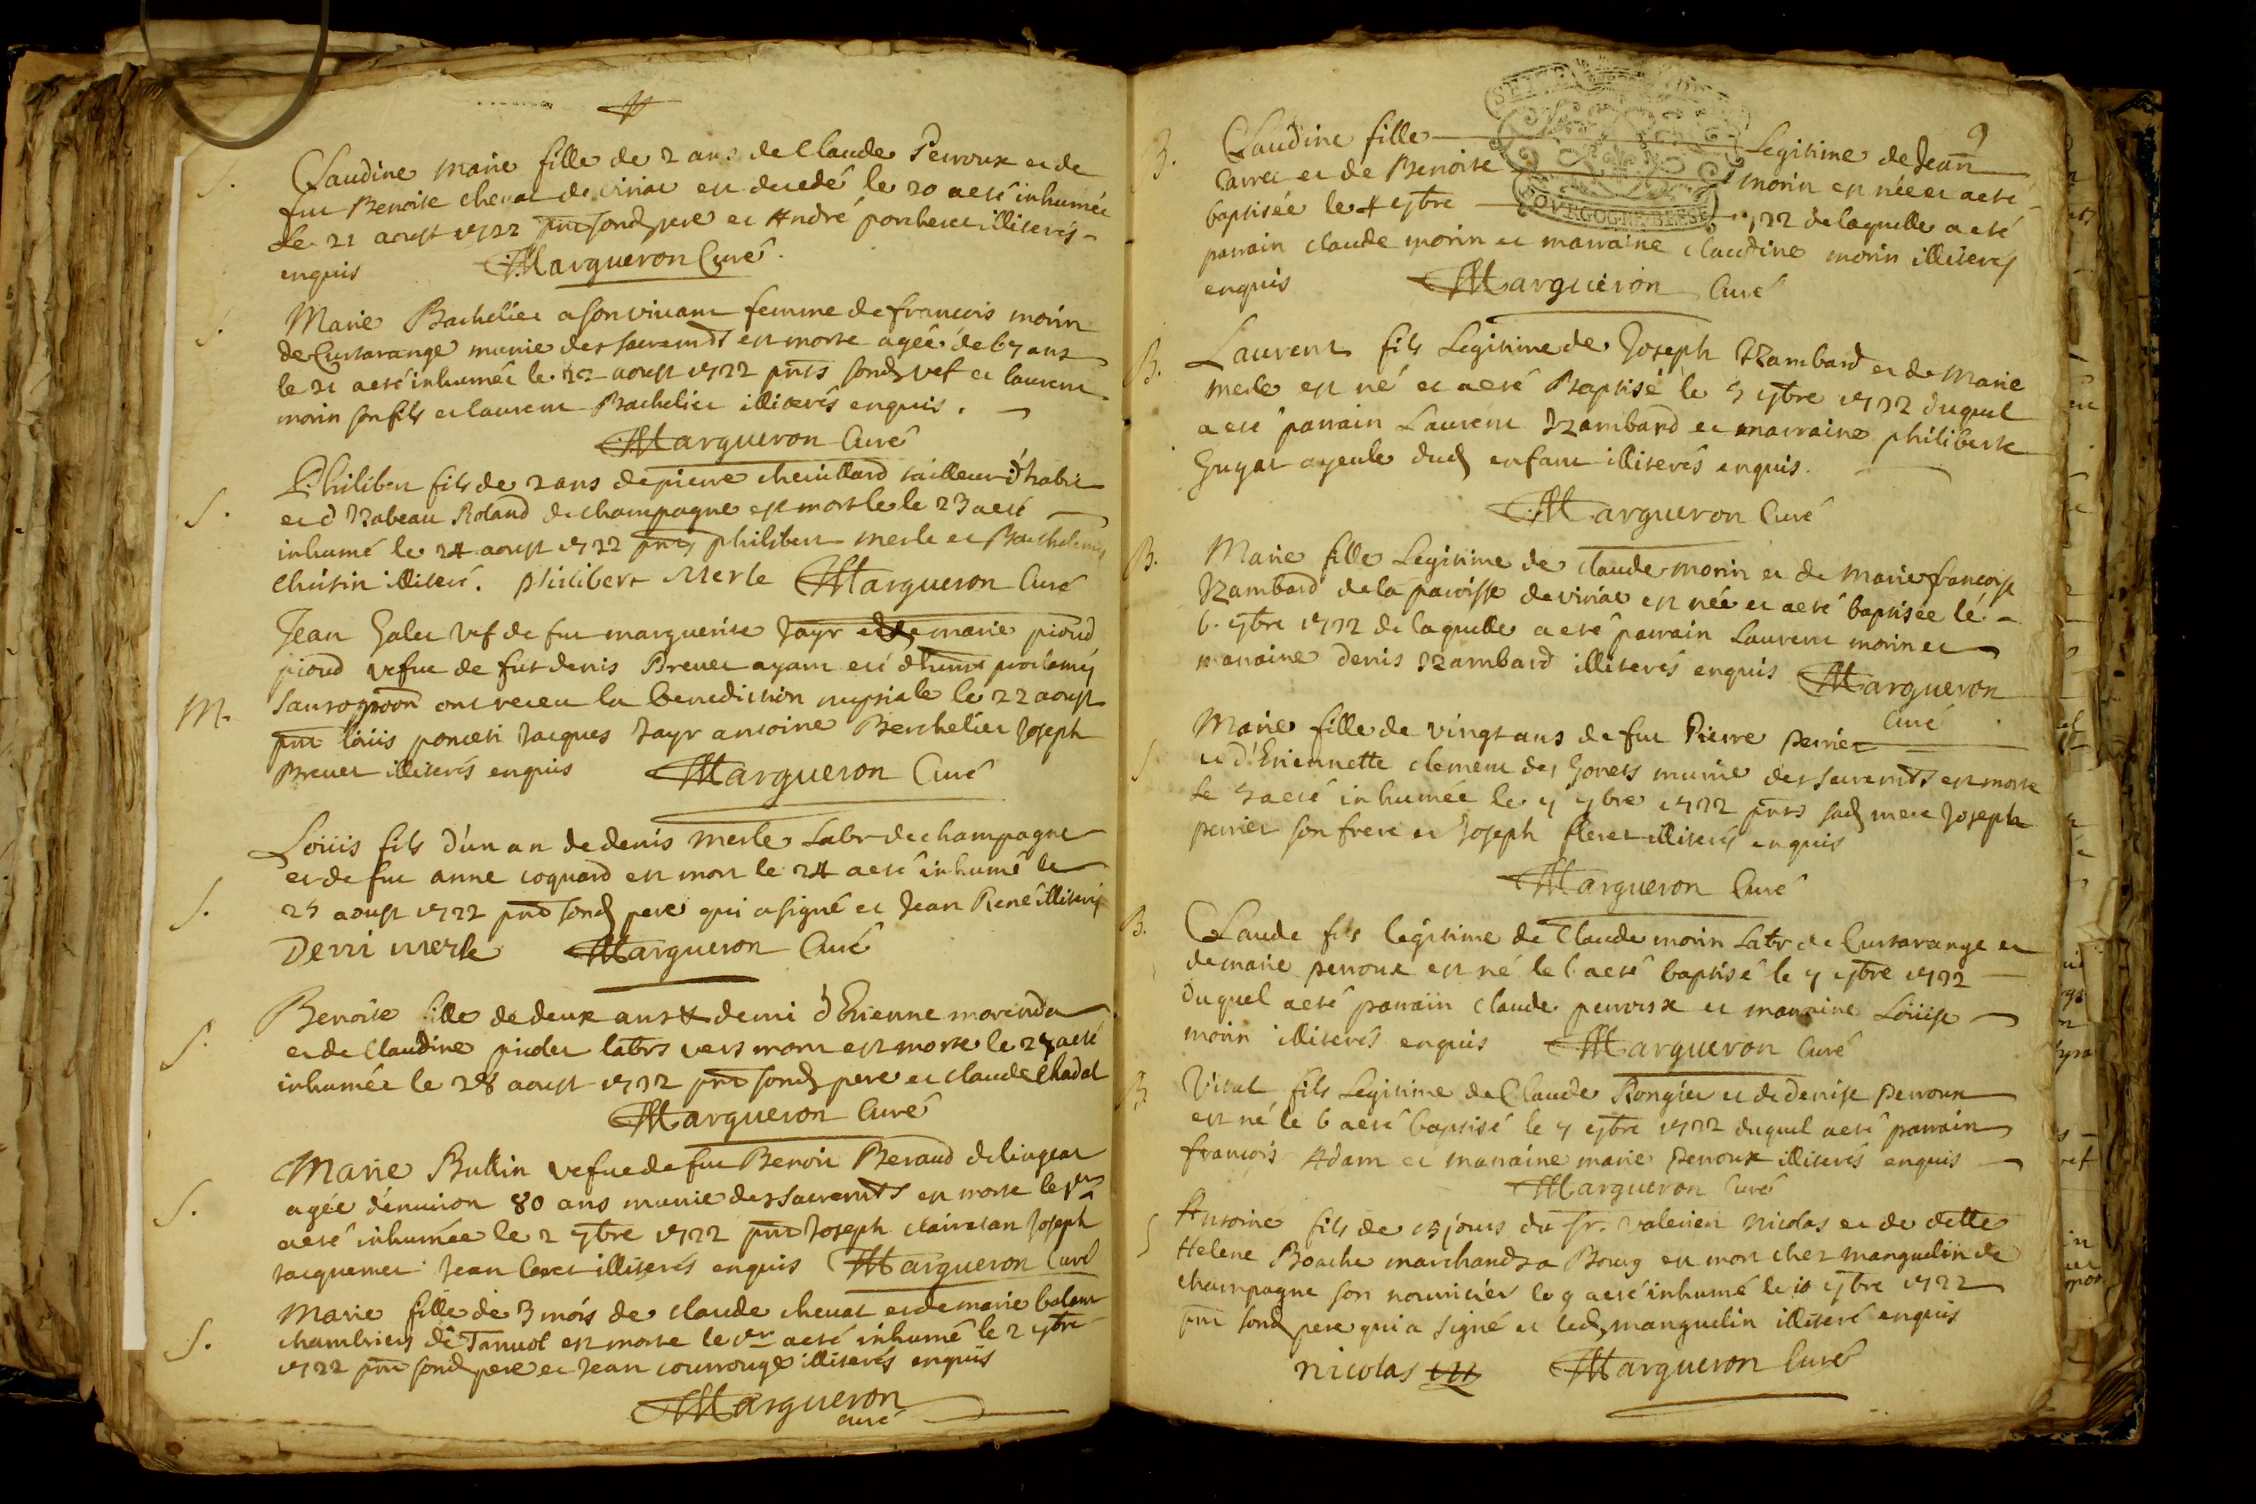 S. Claudine Marie fille de 2 ans de Claude Perroux et de
fut Benoite chevat de viriat est decedé le 20 a eté inhumée
le 21 aoust 1722 pnt sond pere et André porcheret illiterés
enquis Margueron Curé
S. Marie Bachelier a son vivant femme de francois morin
de Curtarange munie des sacremts est morte agée de 67 ans
le 21 a eté inhumée le 22 aoust 1722 pnts sond vef et laurent
morin son fils et laurent Bachelier illiterés enquis.
Margueron Curé
S. Philibert fils de 2 ans de pierre chevillard tailleur d'habit
et d'Izabeau Roland de champagne est mort le le 23 a eté
inhumé le 24 aoust 1722 pnts philibert merle et Barthelemy
Chutin illiteré. philibert Merle Margueron Curé
Jean Galet vef de fut marguerite Jayr et de marie pioud
pioud vefue de fut denis Brevet ayant eté proclamés
M. ont receu la benediction nuptiale le 22 aoust
pnt Loüis poncet Jacques Jayr antoine Berthelier Joseph
Brevet illiterés enquis Margueron Curé
S. Loüis fils d'un an de denis merle Labr de champagne
et de fut anne coquard est mort le 24 a eté inhumé le
25 aoust 1722 pnt sond pere qui a signé et Jean René illiteré
Deni merle Margueron Curé
S. Benoite fille de deux ans & demi d'Etienne
et de Claudine labrs vers mont est morte le 27 a eté
inhumée le 28 aoust 1722 pnt sond pere et claude Chadal
Margueron Curé
S. Marie Buttin vefue de fut Benoit Beraud de lingeat
agée d'environ 80 ans munie des sacremts est morte le 1er
a eté inhumée le 2 7bre 1722 pnt Joseph clairetan Joseph
Jacquemet Jean illiterés enquis Margueron Curé
S. Marie fille de 3 mois de claude chevat et de marie
chambriers de Tanvol est morte le 1er a eté inhumé le 2 7bre
1722 pnt sond pere et Jean courrouge illiterés enquis
Margueron
curé
9
B. Claudine fille Legitime de Jean
Carret et de Benoite morin est née et a eté
baptisée le 4 7bre 1722 de laquelle a eté
parrain claude morin et marraine claudine morin illiterés
enquis Margueron Curé
B. Laurent fils Legitime de Joseph Rambard et de Marie
merle est né et a eté Baptisé le 5 7bre 1722 duquel
a eté parrain Laurent Rambard et marraine philiberte
Guyat ayeule dud enfant illiterés enquis.
Margueron Curé
B. Marie fille Legitime de claude morin et de marie francoise
Rambard de la paroisse de viriat est née et a eté baptisée le
6. 7bre 1722 de laquelle a eté parrain Laurent morin et
marraine denis Rambard illiterés enquis Margueron
Curé
S. Marie fille de vingt ans de fut Pierre perrier
et d'Etiennette clement des Gonets munie des sacremts est morte
le 5 a eté inhumée le 7 7bre 1722 pnts sad mere Joseph
perrier son frere et Joseph fleret illiterés enquis
Margueron Curé
B. Claude fils légitime de Claude morin Labr de Curtarange et
de marie perroux est né le 6 a eté baptisé le 7 7bre 1722
duquel a eté parrain claude perroux et marraine Loüise
morin illiterés enquis Margueron Curé
B. Vital fils Legitime de Claude Rongier et de denise perroux
est né le 6 a eté baptisé le 7 7bre 1722 duquel a eté parrain
francois Adam et marraine marie perroux illiterés enquis
Margueron Curé
S Antoine fils de 15 jours du sr. valerien Nicolas et de dlle
Helene Boache marchands a Bourg est mort chez manguelin de
champagne son nourricier le 9 a eté inhumé le 10 7bre 1722
pnt sond pere qui a signé et led manguelin illiteré enquis
nicolas Margueron Curé